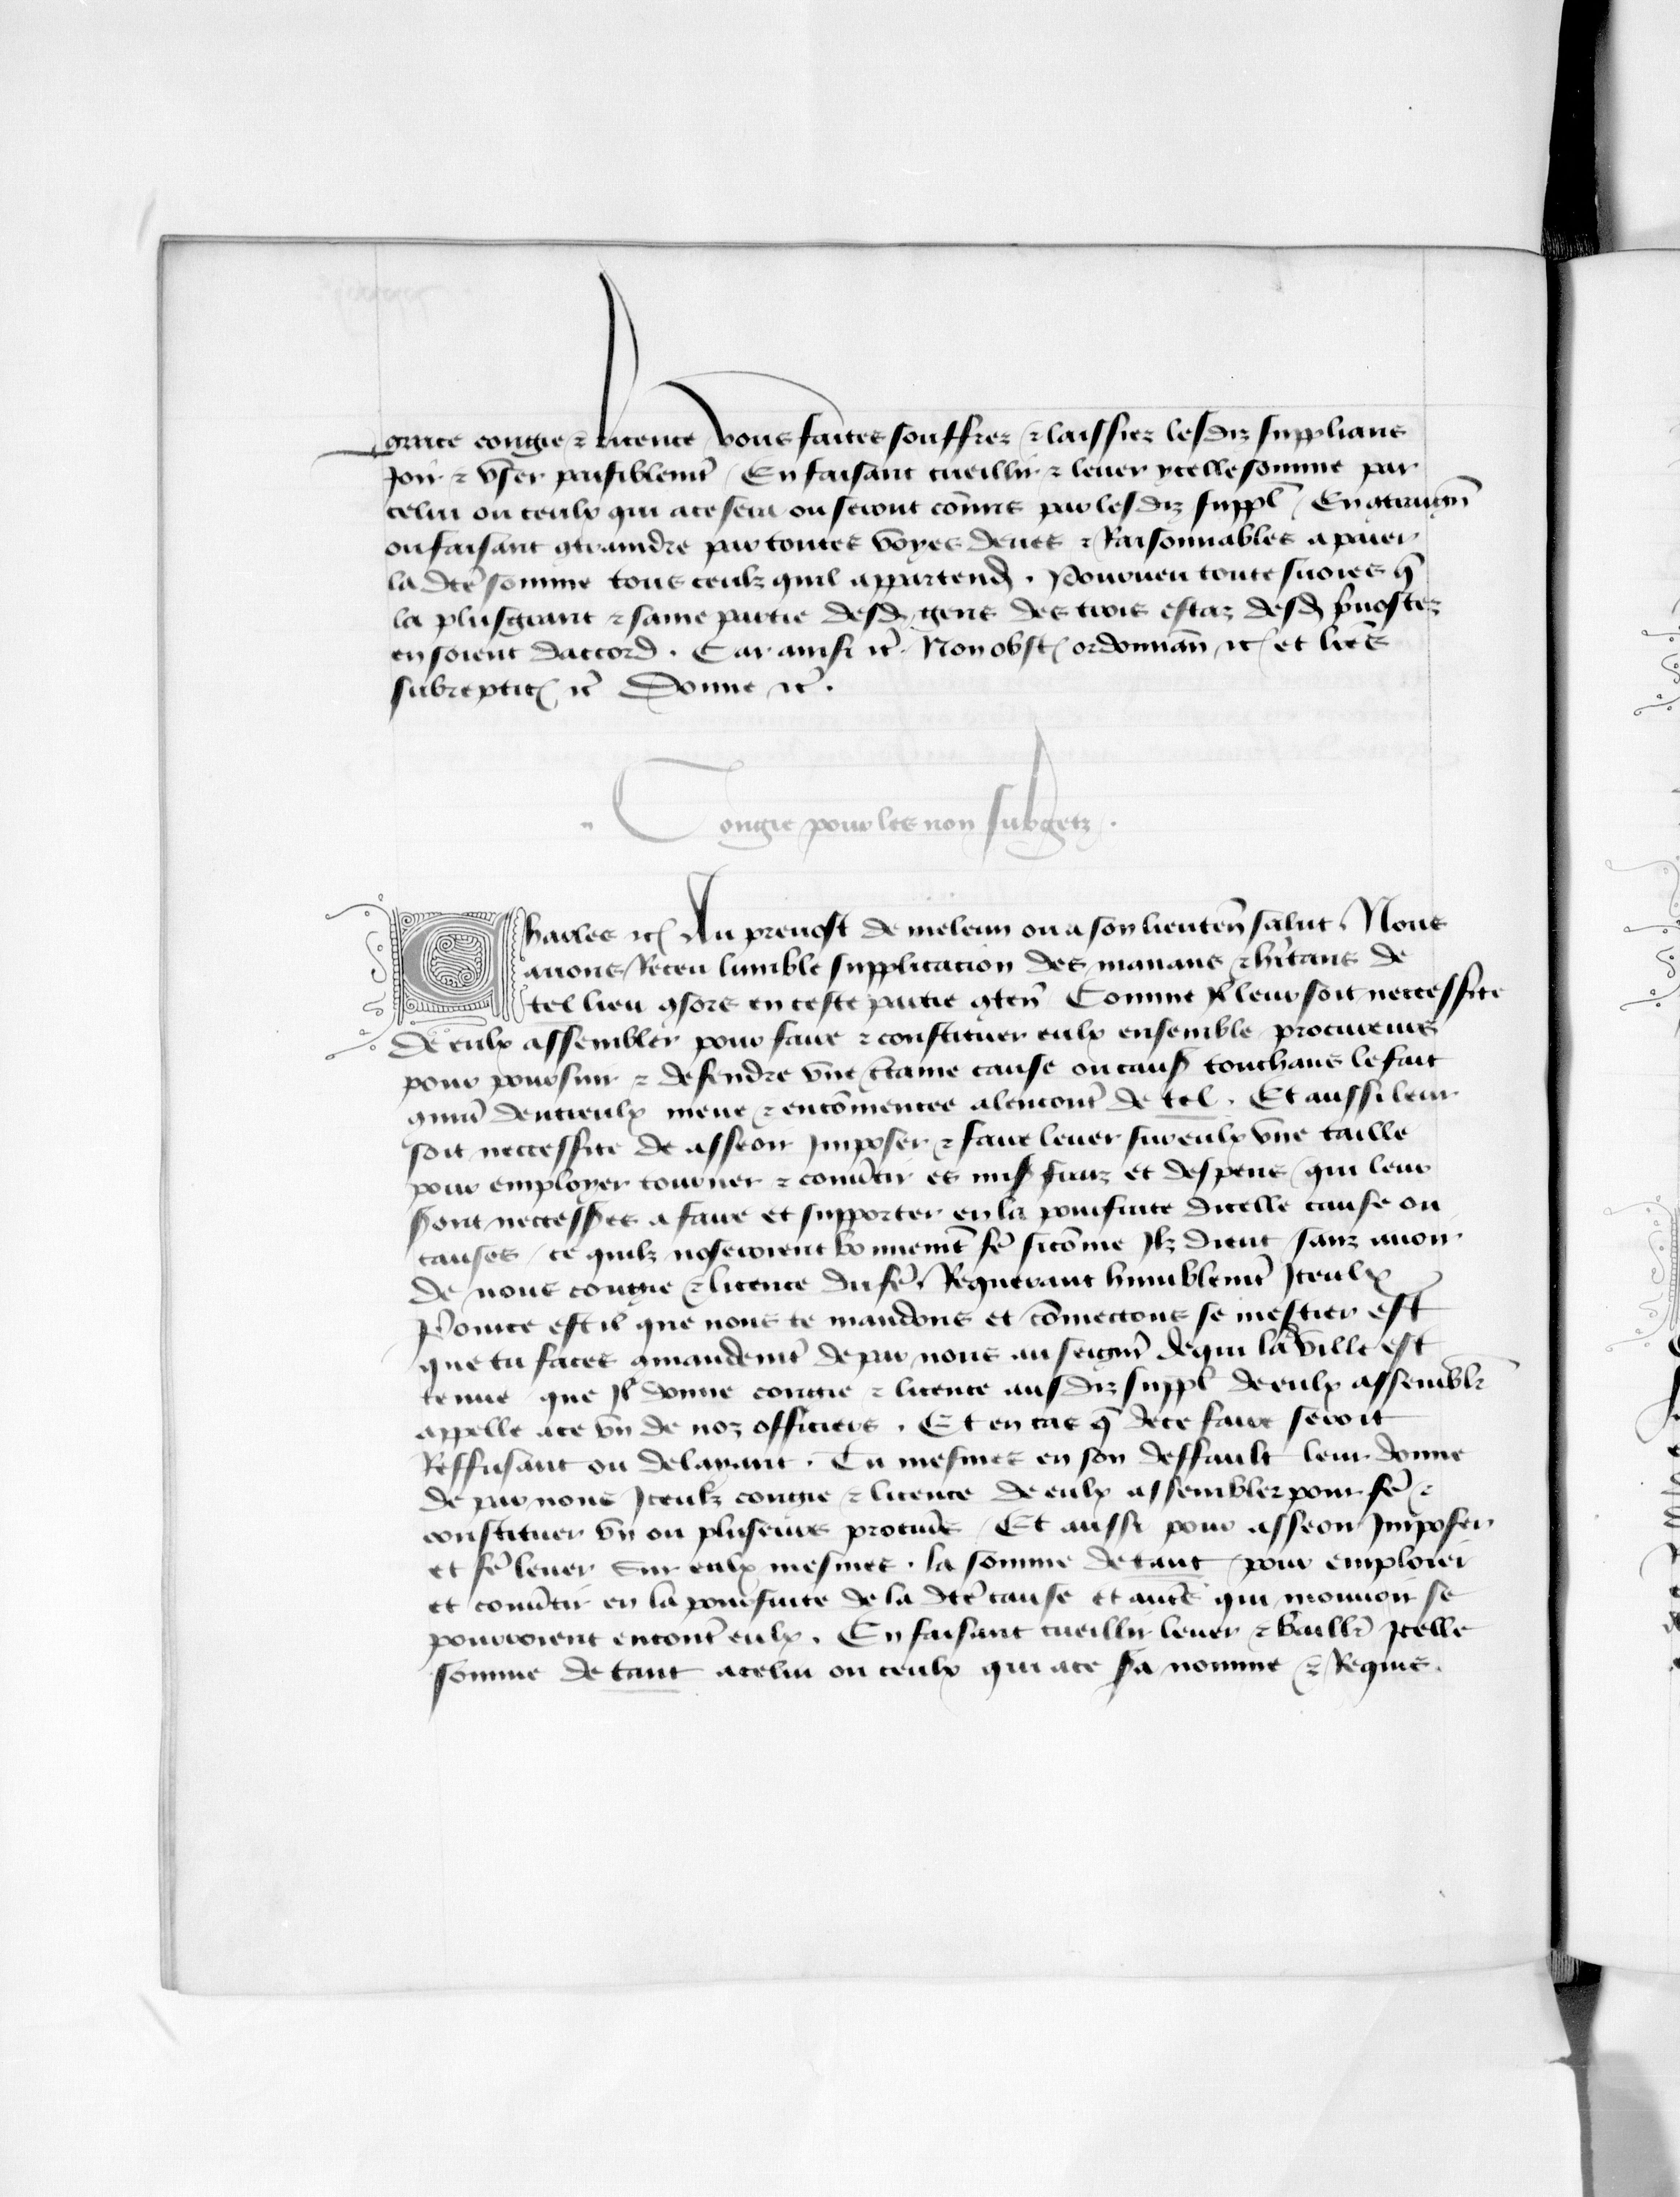 grace congie ⁊ licence vous faictes souffrez ⁊ laissiez lesdiz supplians
Joir ⁊ vser paisiblemt̃ / En faisant cueillir ⁊ leuer ycelle somme par
celui ou ceulx qui ace sera ou seront cõmis par lesdiz suppl̃ / En ꝯtraignñ
ou faisant ꝯtraindre par toutes voyes deues ⁊ Raisonnables a paier
la dc̃e somme tous ceulz quil appartendr̃ . Pourueu toutesuoies q̃
la plusgrant ⁊ saine partie desd̃ gens des trois estaz desd̃ p̃uostez
en soient daccord . Car ainsi ⁊c̃ . Non obst̃ ordonnan̄ ⁊c̃ et lr̃es
subreptic̃ ⁊c̃ Donne ⁊c̃ .
Congie pour les non subgetz .
Charles ⁊c̃ Au preuost de meleun ou a son lieuten̄ salut / Nous
auons Receu lumble supplicacion des manans ⁊ hĩtans de
tel lieu ꝯsors en ceste partie ꝯten̄ Comme Jl leur soit neccessite
de eulx assembler pour faire ⁊ constituer eulx ensemble procureurs
pour poursuir ⁊ defendre vne c̃taine cause ou caus̃ touchans le fait
ꝯmũ dentreulx meue ⁊ encõmencee alencont̃ de tel . Et aussi leur
soit neccessite de asseoir Imposer ⁊ faire leuer sur eulx vne taille
pour employer tourner ⁊ conũtir es mis̃ fraiz et despens qui leur
sont neccess̃es a faire et supporter en la poursuite dicelle cause ou
causes / ce quilz noseroient bonnemt̃ fẽ sicõme Jlz dient / sanz auoir
de nous congie ⁊ licence du fẽ / Requerant humblemt̃ Jceulx
Pource est il que nous te mandons et cõmectons se mestier est
que tu faces ꝯmandemt̃ depar nous au seignr̃ de qui la ville est
tenue que Jl donne congie ⁊ licence ausdiz suppl̃ de eulx assembl̃r
appelle ace vn de noz officiers . Et en cas q̃ de ce faire seroit
Reffusant ou delayant . Tu mesmes en son deffault leur donne
de par nous Jceulz congie ⁊ licence de eulx assembler pour fẽ ⁊
constituer vn ou pluseurs procur̃s / Et aussi pour asseoir Imposer
et fẽ leuer sur eulx mesmes . la somme de tant pour emploier
et conũtir en la poursuite de la dc̃e cause et autr̃s qui mouuoir se
pourroient encont̃ eulx . En faisant cueillir leuer ⁊ baill̃r Jcelle
somme de tant acelui ou ceulx qui ace s̃a nomme ⁊ Requis .